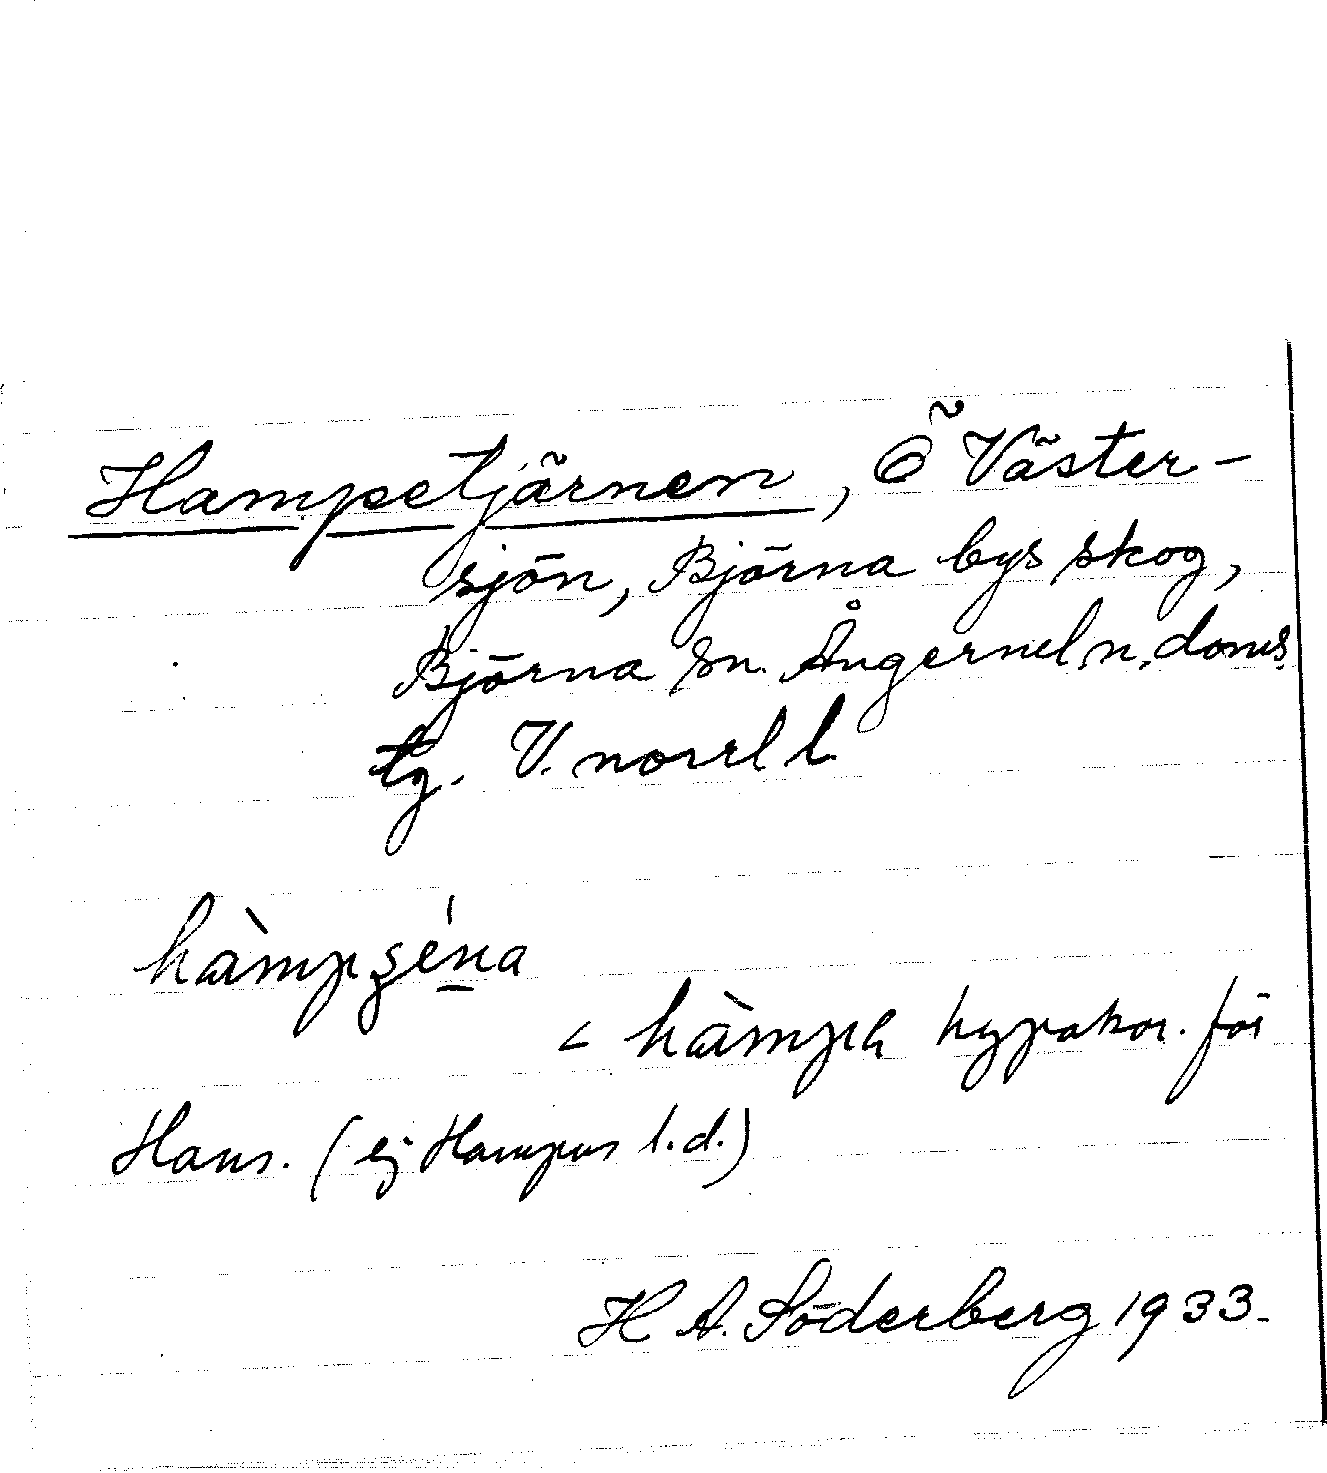 Hampetjärnen, Ö Väster-
sjön, Björna bys skog,
Björna sn. Ångermel, n. doms.
tg. V. norrl l.
hàmpʂéna
< hàmpa hypokor. för
Hans. (ej Hampus l.d.)
H A. Söderberg 1933.